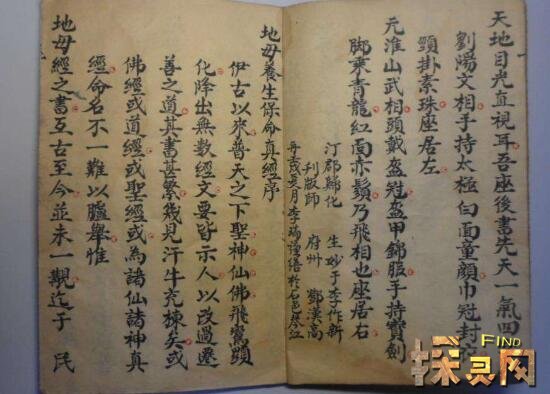 天地目光直視耳吾座後書先天一氣四
劉陽文相手持太極白面童顏巾冠封
頸掛素珠座居左
元淮山武相頭戴盔冠盔甲錦服手持寶劍
脚乘青龍紅面赤鬚乃飛相也座居右
汀郡歸化 生妙于李作新
刋版師 府州 鄧漢高
月李瑞謹繕於
地母養生保命真經序
伊古以來普天之下聖神仙佛飛鸞顯
化降出無數經文要皆示人以改過遷
善之道其書甚繁幾見汗牛充棟矣或
佛經或道經或聖經或為諸仙諸神真
經命名不一難以臚舉惟
地母經之書亙古至今並未一覩迄于 民
FIND
探灵网